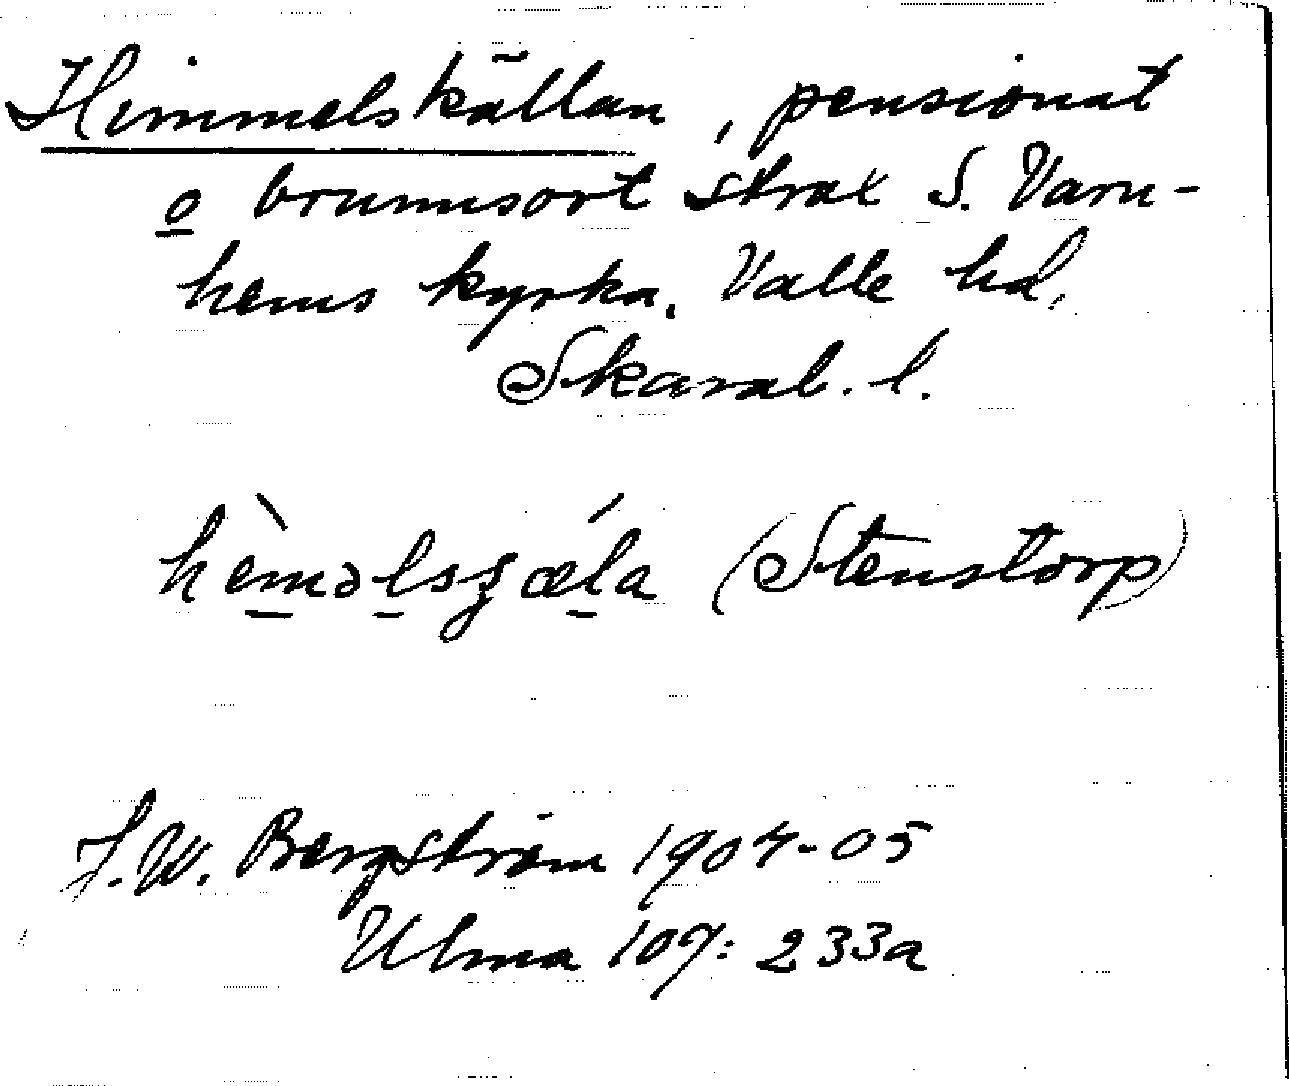 Himmelskällan, pensionat
o brunnsort strax S. Varn-
hems kyrka. Valle hd.
Skarab. l.
hèməlsʂǽla (Stenstorp)
J. W. Bergström 1904-05
Ulma 107: 233a